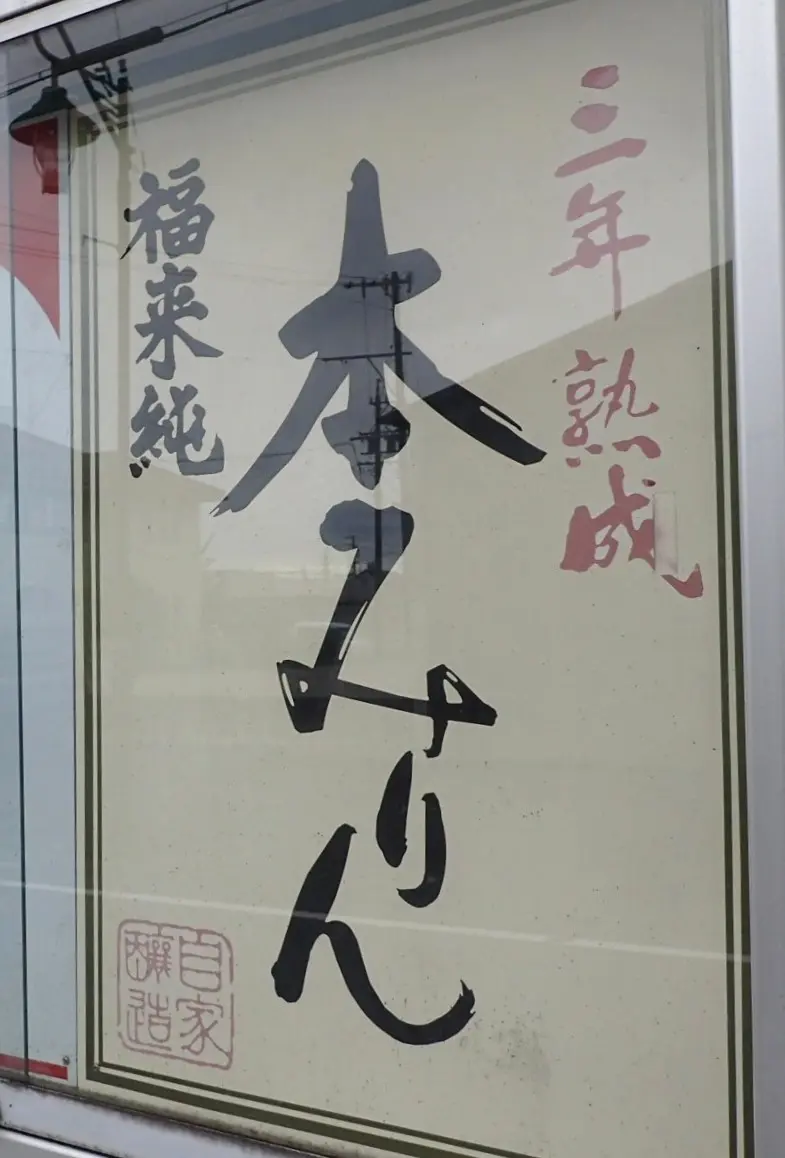 三年熟成
本みりん
福来純
自家
醸造